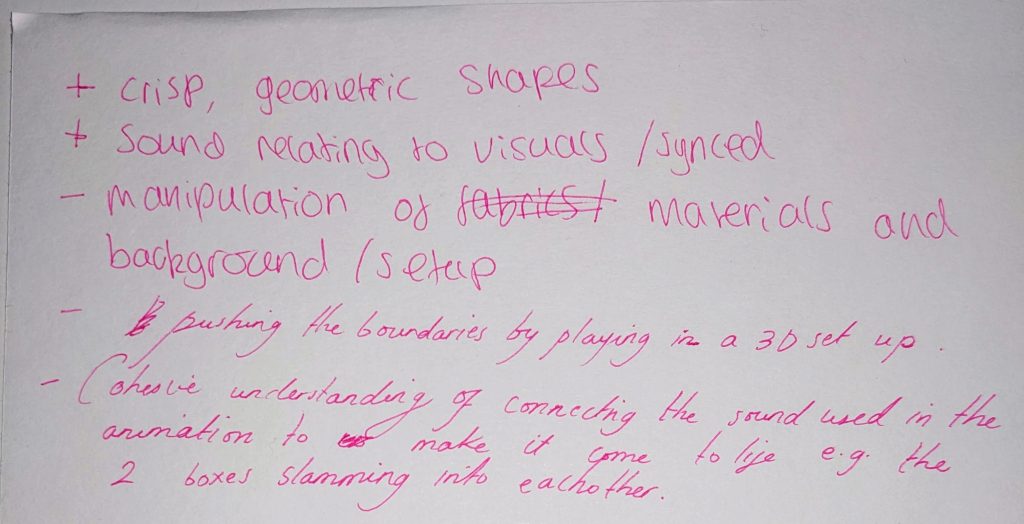 + crisp, geometric shapes
+ Sound relating to visuals /synced
- manipulation of fabrics/ materials and
background /setup
- pushing the boundaries by playing in a 3D set up.
- Cohesive understanding of connecting the sound used in the
animation to make it come to life e.g. the
2 boxes slamming into eachother.